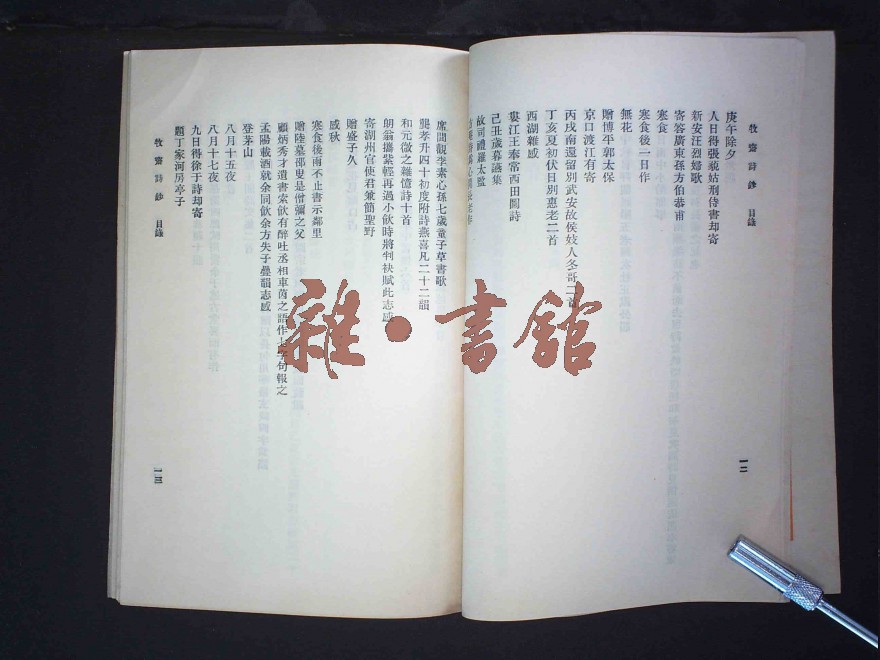 牧齋詩鈔　目錄
一二
庚午除夕
人日得張藐姑刑侍書却寄
新安汪烈婦歌
寄答廣東孫方伯恭甫
寒食
寒食後一日作
無花
贈博平郭太保
京口渡江有寄
丙戌南還留別武安故侯妓人冬哥二首
丁亥夏初伏日別惠老二首
西湖雜感
婁江王奉常西田圖詩
己丑歲暮讌集
故司禮羅太監
席間觀李素心孫七歲童子草書歌
龔孝升四十初度附詩燕喜凡二十二韻
和元微之雜憶詩十首
朗翁攜紫輕再過小飲時將判袂賦此志感
寄湖州官使君兼簡聖野
贈盛子久
感秋
寒食後雨不止書示鄰里
贈陸墓邵叟是僧彌之父
顧炳秀才遺書索飲有醉吐丞相車茵之語作七字句報之
孟陽載酒就余同飲余方失子疊韻志感
登茅山
八月十五夜
八月十七夜
九日得徐于詩却寄
題丁家河房亭子
牧齋詩鈔　目錄
一三
雜·書館